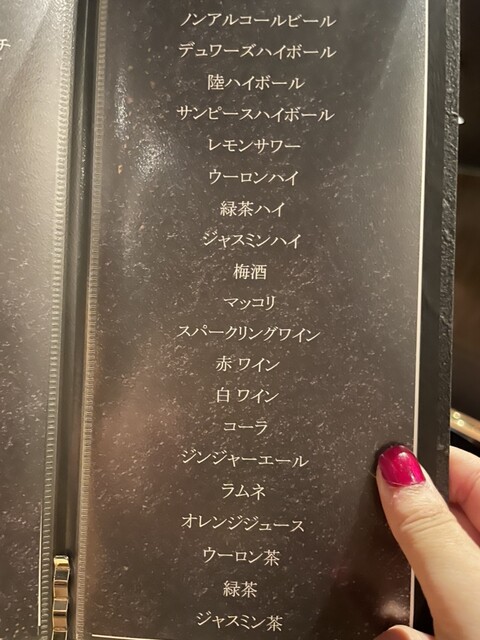 チ
ノンアルコールビール
デュワーズハイボール
陸ハイボール
サンピースハイボール
レモンサワー
ウーロンハイ
緑茶ハイ
ジャスミンハイ
梅酒
マッコリ
スパークリングワイン
赤 ワイン
白 ワイン
コーラ
ジンジャーエール
ラムネ
オレンジジュース
ウーロン茶
緑茶
ジャスミン茶